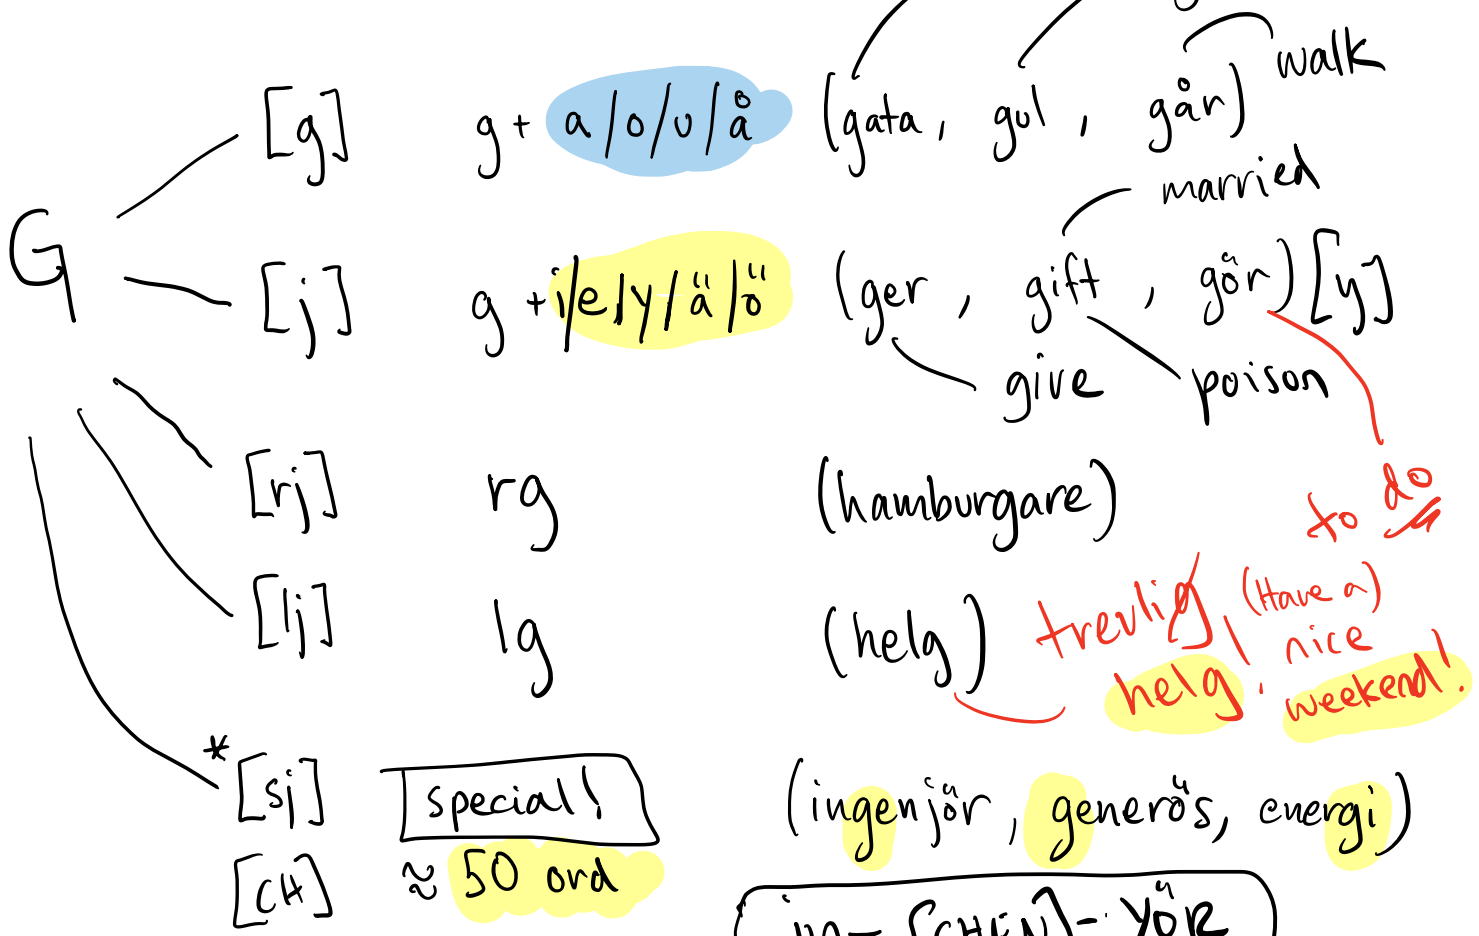 walk
[g] g + a/o/u/å (gata, gul, går)
married
G
[j] g + i/e/y/ä/ö (ger, gift, gör) [y]
give poison
to do
[rj] rg (hamburgare)
[lj] lg (helg) trevlig helg! (Have a) nice weekend!
* [sj] special! (ingenjör, generös, energi)
[CH] ≈ 50 ord
in - [CHEN] - YÖR